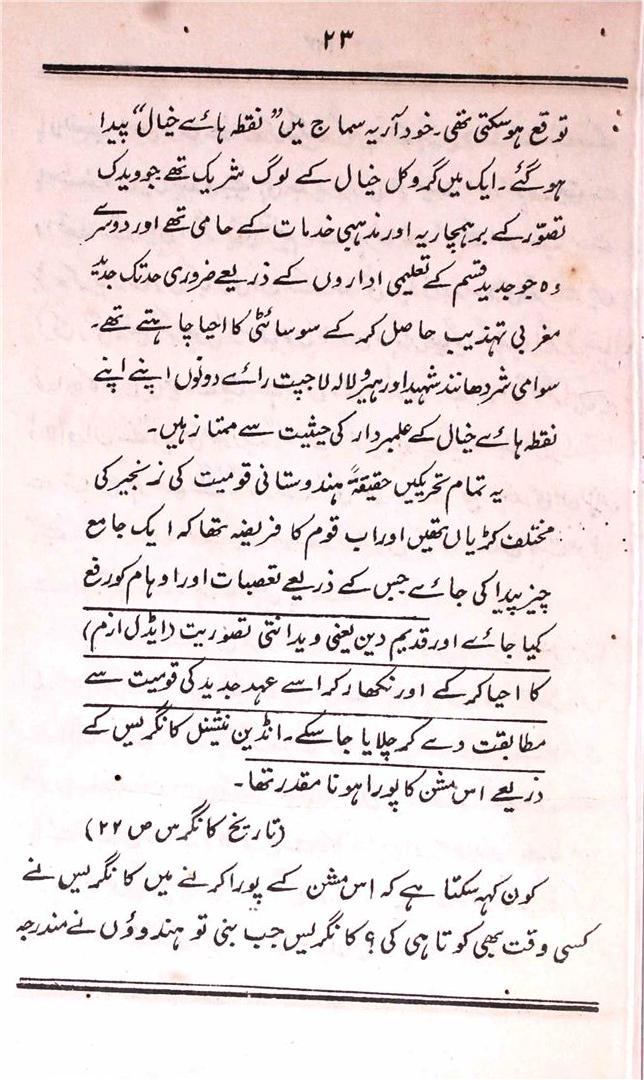 ۲۳
توقع ہوسکتی تھی۔ خود آریہ سماج میں "نقطہ ہائے خیال" پیدا
ہوگئے۔ ایک میں گروکل خیال کے لوگ شریک تھے جو ویدک
تصوّر کے برہمچاریہ اور مذہبی خدمات کے حامی تھے اور دوسرے
وہ جو جدید قسم کے تعلیمی اداروں کے ذریعے ضروری حد تک جدید
مغربی تہذیب حاصل کرکے سوسائٹی کا احیا چاہتے تھے۔
سوامی شردھانند شہید اور ہیرو لالہ لاجپت رائے دونوں اپنے اپنے
نقطہ ہائے خیال کے علمبردار کی حیثیت سے ممتاز ہیں۔
یہ تمام تحریکیں حقیقۃً ہندوستانی قومیت کی زنجیر کی
مختلف کڑیاں تھیں اور اب قوم کا فریضہ تھا کہ ایک جامع
چیز پیدا کی جائے جس کے ذریعے تعصبات اور اوہام کو رفع
کیا جائے اور قدیم دین یعنی ویدانتی تصوّریت (ایڈل ازم)
کا احیا کرکے اور نکھار کر اسے عہد جدید کی قومیت سے
مطابقت دے کر چلایا جاسکے۔ انڈین نیشنل کانگریس کے
ذریعے اس مشن کا پورا ہونا مقدر تھا۔
(تاریخ کانگرس ص ۲۲)
کون کہہ سکتا ہے کہ اس مشن کے پورا کرنے میں کانگریس نے
کسی وقت بھی کوتاہی کی؟ کانگریس جب بنی تو ہندوؤں نے مندرجہ